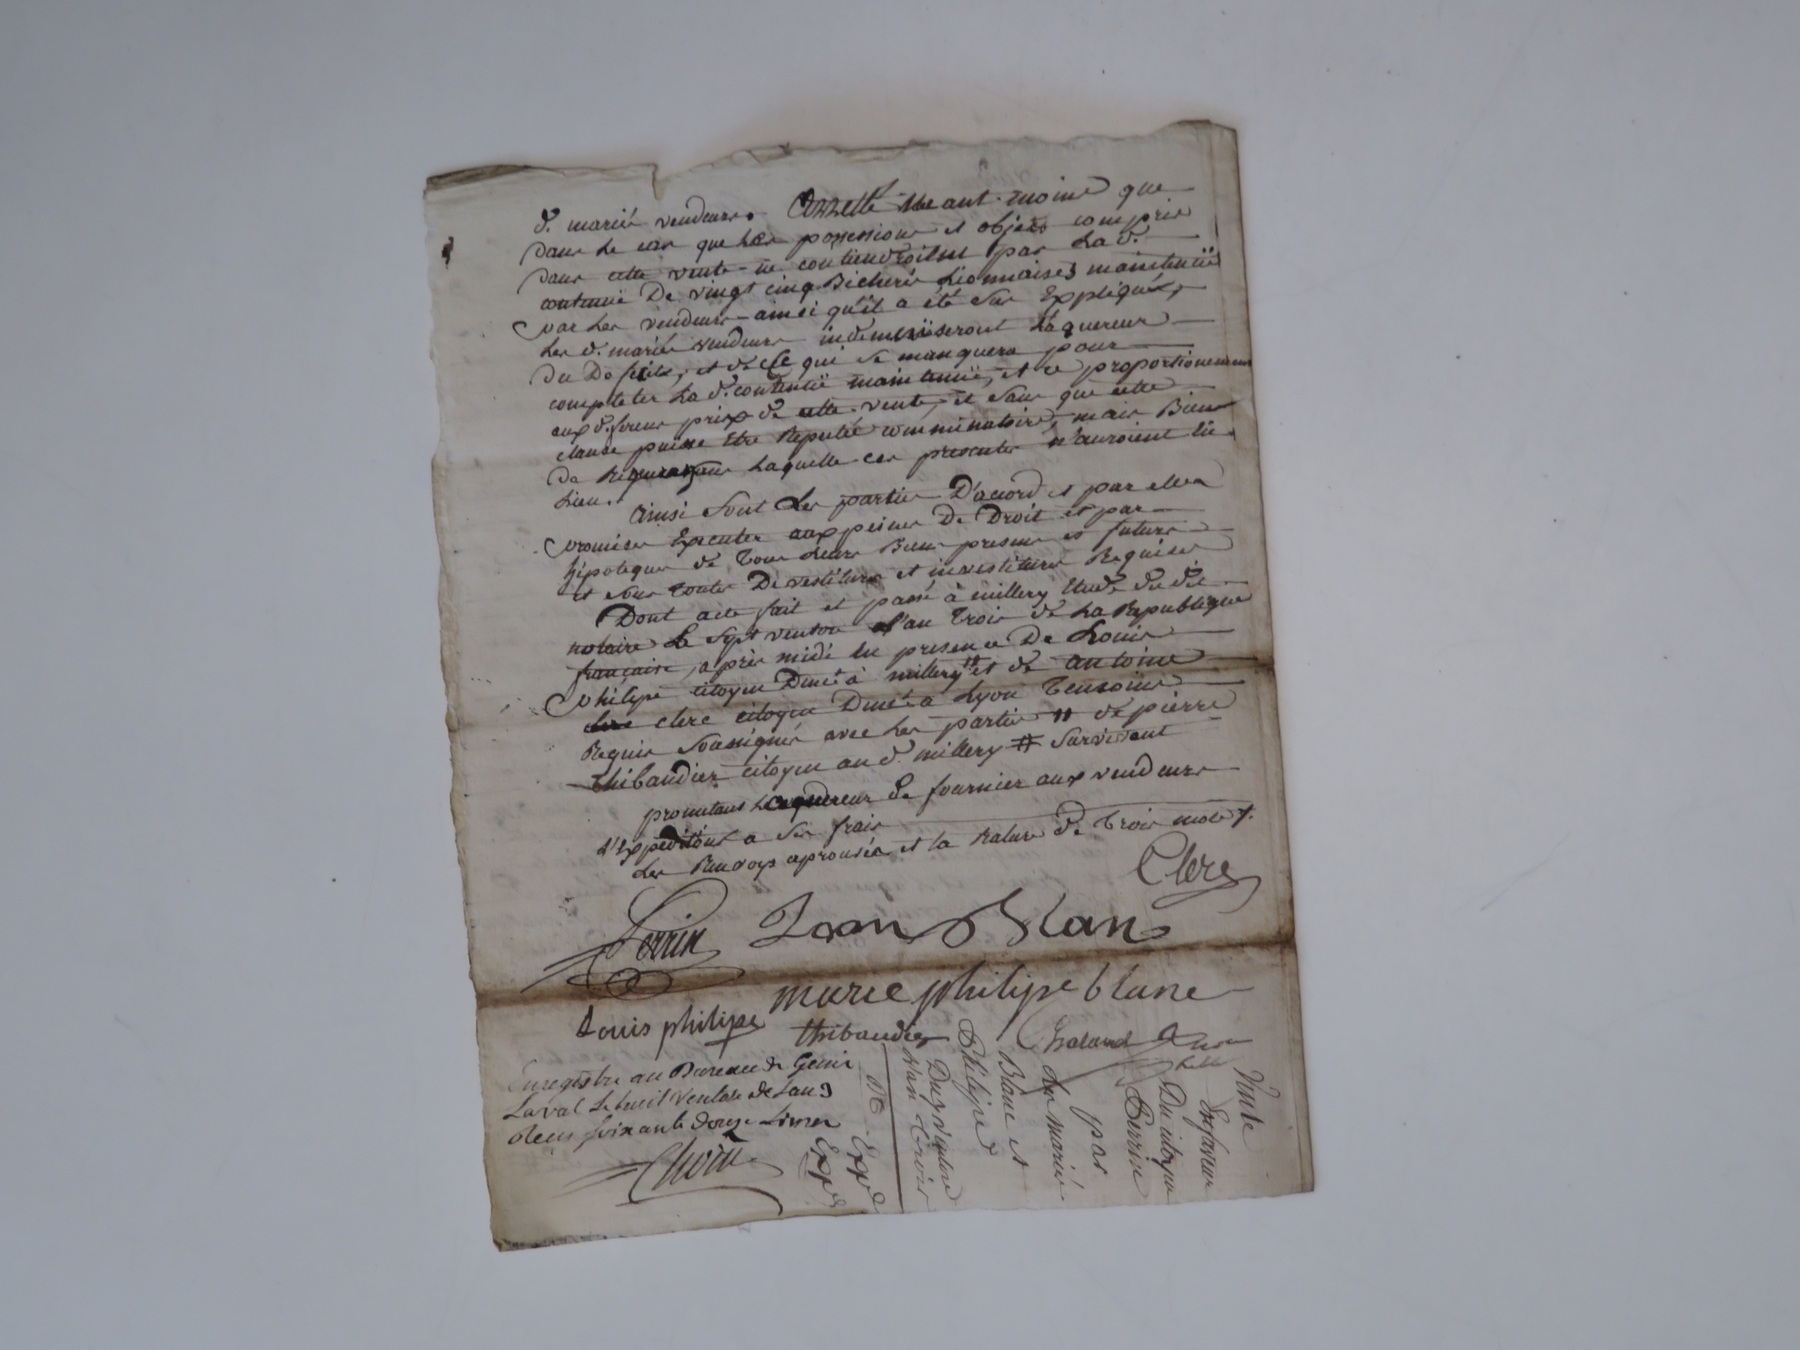 d. mariés vendeurs. Arretté Neant moine que
dans le cas que les possessions et objets compris
dans cette vente ne contiendroient pas La d.
contenuë De vingt cinq Bicherés Lionnaises maintenuë
par les vendeurs ainsi qu'il a été sus Expliqué,
Les d. mariés vendeurs indemniseront L'aquereur
du Deficit, et de Ce qui se manquera pour
completer La d. contenuë maintenuë, et ce proportionement
aux d. prix de cette vente, et sans que cette
clause puisse Etre Reputée comminatoire, mais Bien
de Rigueur sans Laquelle ces presentes n'auroient eü
Lieu.
Ainsi sont Les parties D'accord et par elles
promises Executer aux peines De Droit et par
hipoteques de Tous Leurs Biens presens et futurs
et sous toutes Devestitures et investitures Requises
Dont acte fait et passé à millery Etude du dit
notaire Le Sept ventose l'an Trois de La Republique
francaise, après midi en presence De Louis
philipe citoyen Dmt à millery # et de antoine
clerc citoyen Dmt a Lyon Temoins
Requis soussignés avec les parties # de pierre
Thibaudier citoyen au d. millery # survivant
promettant L'aquereur de fournier aux vendeurs
d'Expeditions a ses frais
Les Renvoys aprouvés et la Rature de Trois mots
Clerc
Perrin Jean Blan
marie philipe blanc
Louis philipe Thibaudier
Enregistre au Bureau de Genis
Laval Le huit Ventose de Lan 3
Reçu soixante douze Livres
Vente
En faveur
Du citoyen
Perrin
par
Les mariés
Blanc et
Philipe
Du 7 ventose
L'an Trois
Expé
Expé